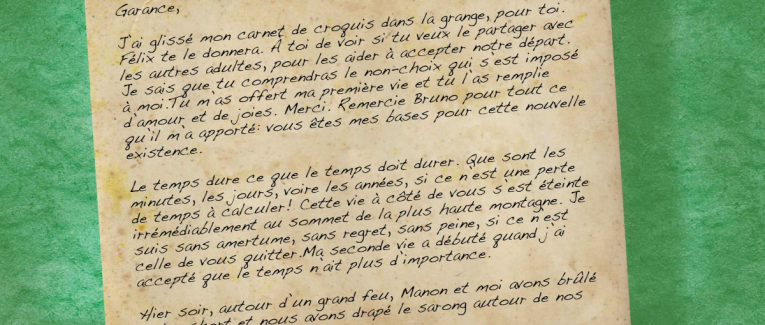 Garance,
J'ai glissé mon carnet de croquis dans la grange, pour toi.
Félix te le donnera. À toi de voir si tu veux le partager avec
les autres adultes, pour les aider à accepter notre départ.
Je sais que tu comprendras le non-choix qui s'est imposé
à moi.Tu m'as offert ma première vie et tu l'as remplie
d'amour et de joies. Merci. Remercie Bruno pour tout ce
qu'il m'a apporté: vous êtes mes bases pour cette nouvelle
existence.
Le temps dure ce que le temps doit durer. Que sont les
minutes, les jours, voire les années, si ce n'est une perte
de temps à calculer! Cette vie à côté de vous s'est éteinte
irrémédiablement au sommet de la plus haute montagne. Je
suis sans amertume, sans regret, sans peine, si ce n'est
celle de vous quitter.Ma seconde vie a débuté quand j'ai
accepté que le temps n'ait plus d'importance.
Hier soir, autour d'un grand feu, Manon et moi avons brûlé
short et nous avons drapé le sarong autour de nos